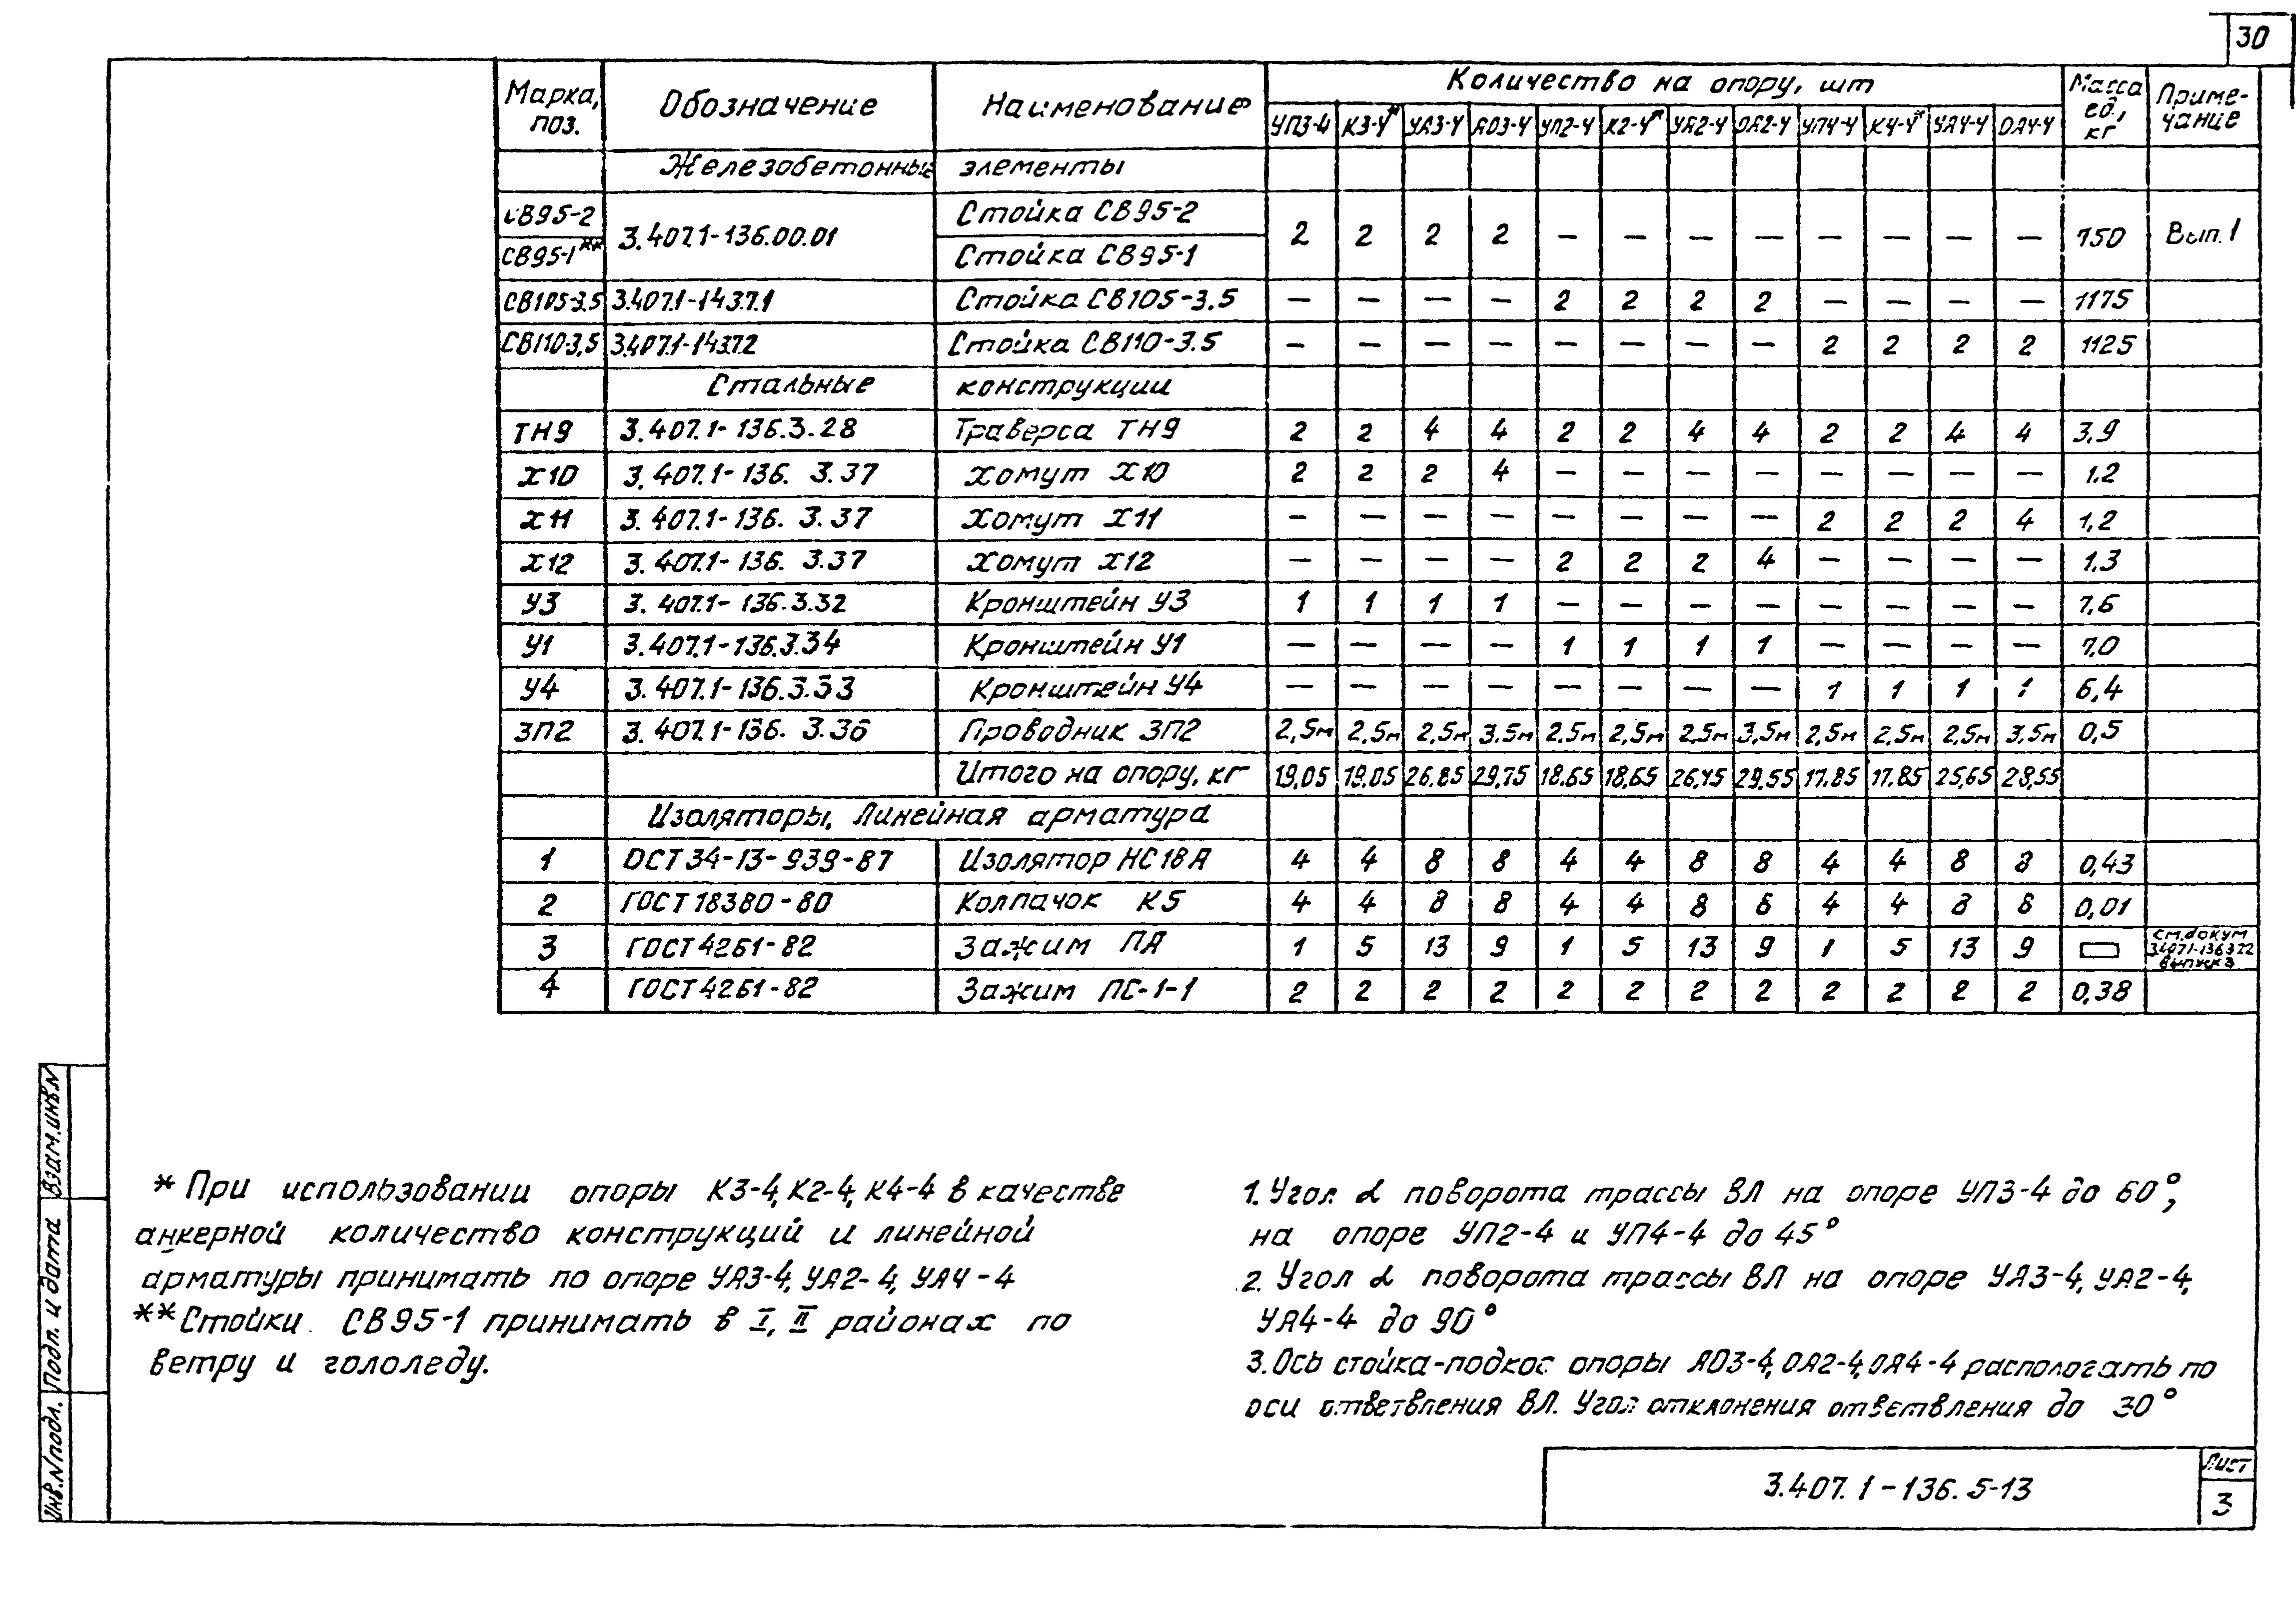 30
Марка, поз. | Обозначение | Наименование | Количество на опору, шт | Масса ед., кг | Приме-чание
УП3-4 | К3-4* | УА3-4 | АО3-4 | УП2-4 | К2-4* | УА2-4 | ОА2-4 | УП4-4 | К4-4* | УА4-4 | ОА4-4
Железобетонные элементы
СВ95-2 | 3.407.1-136.00.01 | Стойка СВ95-2 | 2 | 2 | 2 | 2 | — | — | — | — | — | — | — | — | 750 | Вып. 1
СВ95-1** | Стойка СВ95-1
СВ105-3.5 | 3.407.1-143.7.1 | Стойка СВ105-3.5 | — | — | — | — | 2 | 2 | 2 | 2 | — | — | — | — | 1175
СВ110-3,5 | 3.407.1-143.7.2 | Стойка СВ110-3.5 | — | — | — | — | — | — | — | — | 2 | 2 | 2 | 2 | 1125
Стальные конструкции
ТН9 | 3.407.1-136.3.28 | Траверса ТН9 | 2 | 2 | 4 | 4 | 2 | 2 | 4 | 4 | 2 | 2 | 4 | 4 | 3,9
Х10 | 3.407.1-136. 3.37 | Хомут Х10 | 2 | 2 | 2 | 4 | — | — | — | — | — | — | — | — | 1.2
Х11 | 3.407.1-136. 3.37 | Хомут Х11 | — | — | — | — | — | — | — | — | 2 | 2 | 2 | 4 | 1,2
Х12 | 3.407.1-136. 3.37 | Хомут Х12 | — | — | — | — | 2 | 2 | 2 | 4 | — | — | — | — | 1.3
У3 | 3.407.1-136.3.32 | Кронштейн У3 | 1 | 1 | 1 | 1 | — | — | — | — | — | — | — | — | 7,6
У1 | 3.407.1-136.3.34 | Кронштейн У1 | — | — | — | — | 1 | 1 | 1 | 1 | — | — | — | — | 7,0
У4 | 3.407.1-136.3.33 | Кронштейн У4 | — | — | — | — | — | — | — | — | 1 | 1 | 1 | 1 | 6,4
ЗП2 | 3.407.1-136. 3.36 | Проводник ЗП2 | 2,5м | 2,5м | 2,5м | 3.5м | 2.5м | 2,5м | 2,5м | 3,5м | 2,5м | 2,5м | 2,5м | 3,5м | 0,5
Итого на опору, кг | 19,05 | 19.05 | 26.85 | 29,75 | 18.65 | 18,65 | 26,45 | 29,55 | 17.85 | 17.85 | 25,65 | 28,55
Изоляторы, Линейная арматура
1 | ОСТ 34-13-939-87 | Изолятор НС18А | 4 | 4 | 8 | 8 | 4 | 4 | 8 | 8 | 4 | 4 | 8 | 8 | 0,43
2 | ГОСТ 18380-80 | Колпачок К5 | 4 | 4 | 8 | 8 | 4 | 4 | 8 | 8 | 4 | 4 | 8 | 8 | 0,01
3 | ГОСТ 4261-82 | Зажим ПА | 1 | 5 | 13 | 9 | 1 | 5 | 13 | 9 | 1 | 5 | 13 | 9 | см.докум 3.407.1-136.3.22 выпуск 3
4 | ГОСТ 4261-82 | Зажим ПС-1-1 | 2 | 2 | 2 | 2 | 2 | 2 | 2 | 2 | 2 | 2 | 2 | 2 | 0,38
* При использовании опоры К3-4, К2-4, К4-4 в качестве
анкерной количество конструкций и линейной
арматуры принимать по опоре УА3-4, УА2-4, УА4-4
** Стойки СВ95-1 принимать в I, II районах по
ветру и гололеду.
1. Угол α поворота трассы ВЛ на опоре УП3-4 до 60°,
на опоре УП2-4 и УП4-4 до 45°
2. Угол α поворота трассы ВЛ на опоре УА3-4, УА2-4,
УА4-4 до 90°
3. Ось стойка-подкос опоры АО3-4, ОА2-4, ОА4-4 распологать по
оси ответвления ВЛ. Угол отклонения ответвления до 30°
Инв.N подл. Подп. и дата Взам.инв.N
3.407.1-136.5-13
Лист
3